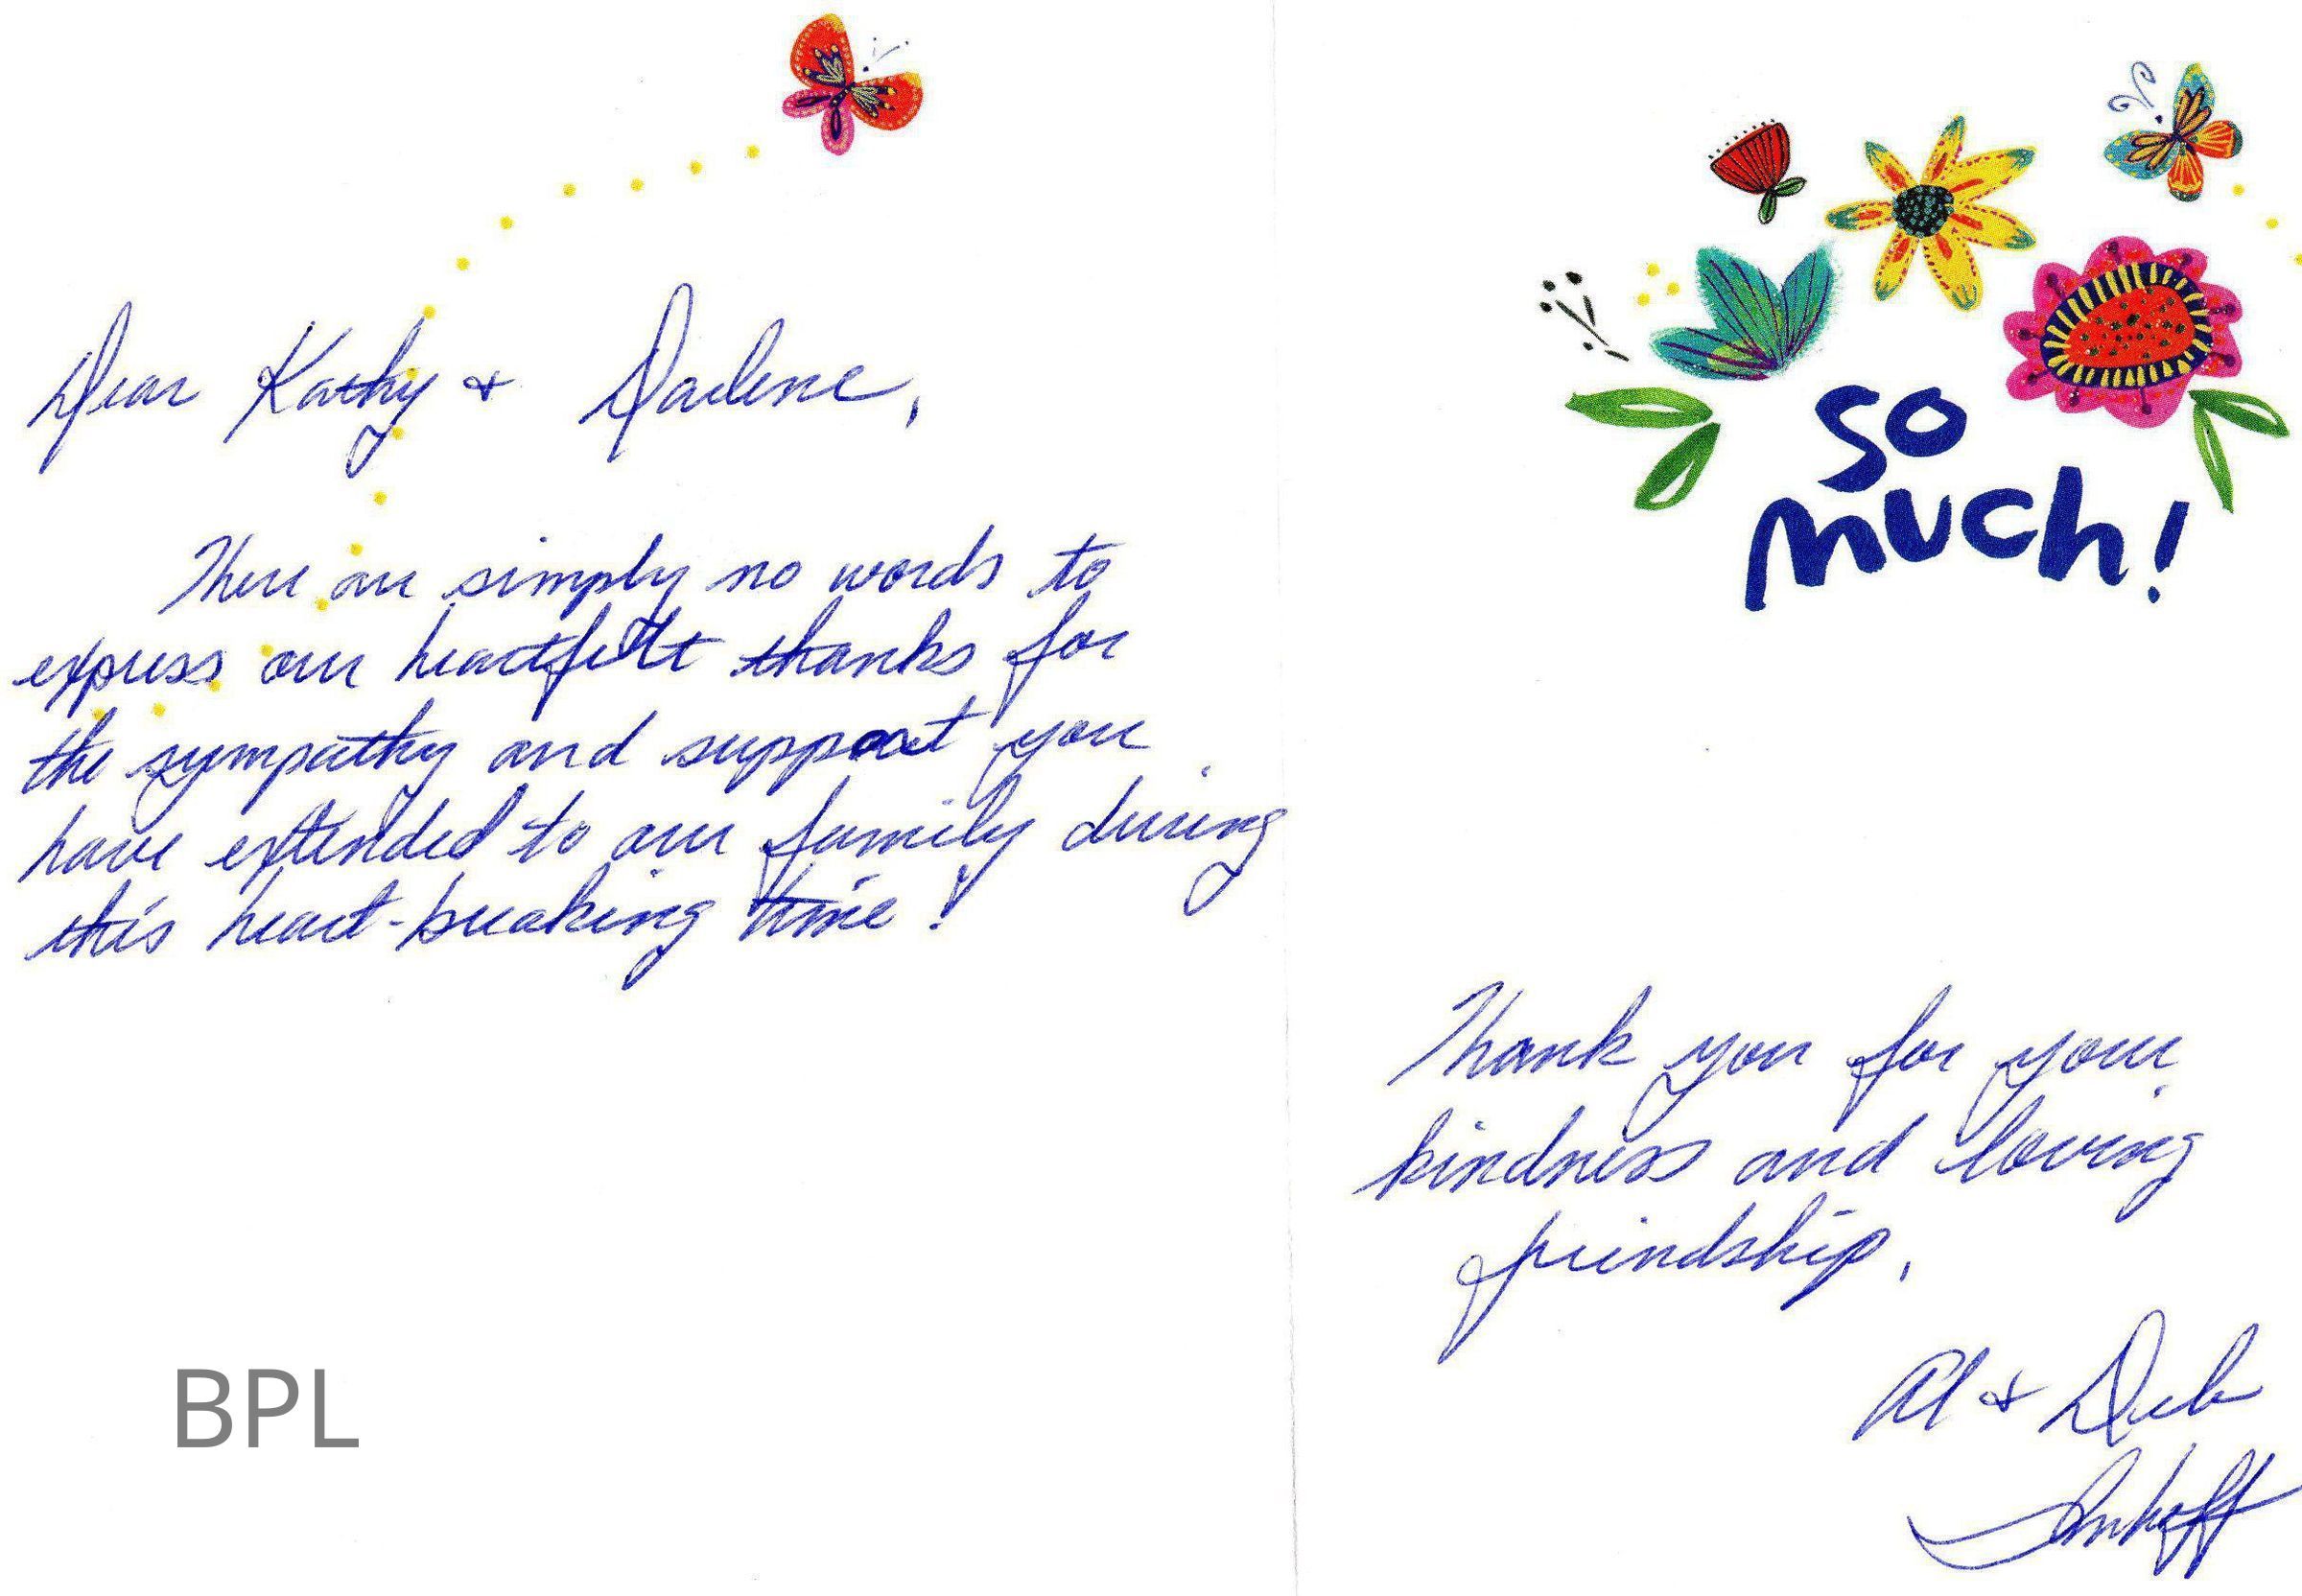 Dear Kathy & Darlene,
There are simply no words to
express our heartfelt thanks for
the sympathy and support you
have extended to our family during
this heart-breaking time!
BPL
so
much!
Thank you for your
kindness and loving
friendship,
Al & Deb
Imhoff